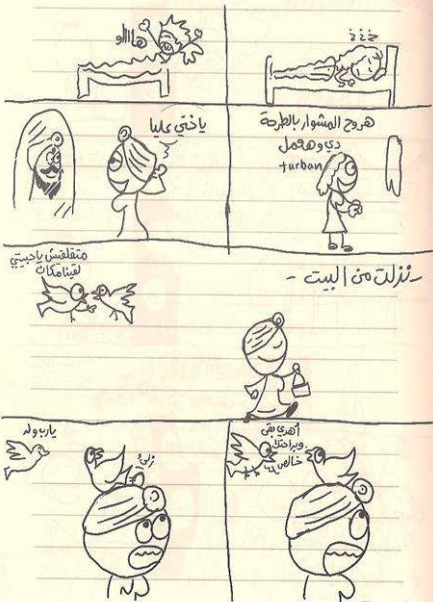 خ خ خ
هاااااو
هروح المشوار بالطرحة
دي وهعمل
turban
ياختي عليا
- نزلت من البيت -
متقلقيش ياحبيبتي
لقينا مكان
اهدي بقى
وبراحتك
خالص
يارب ولد